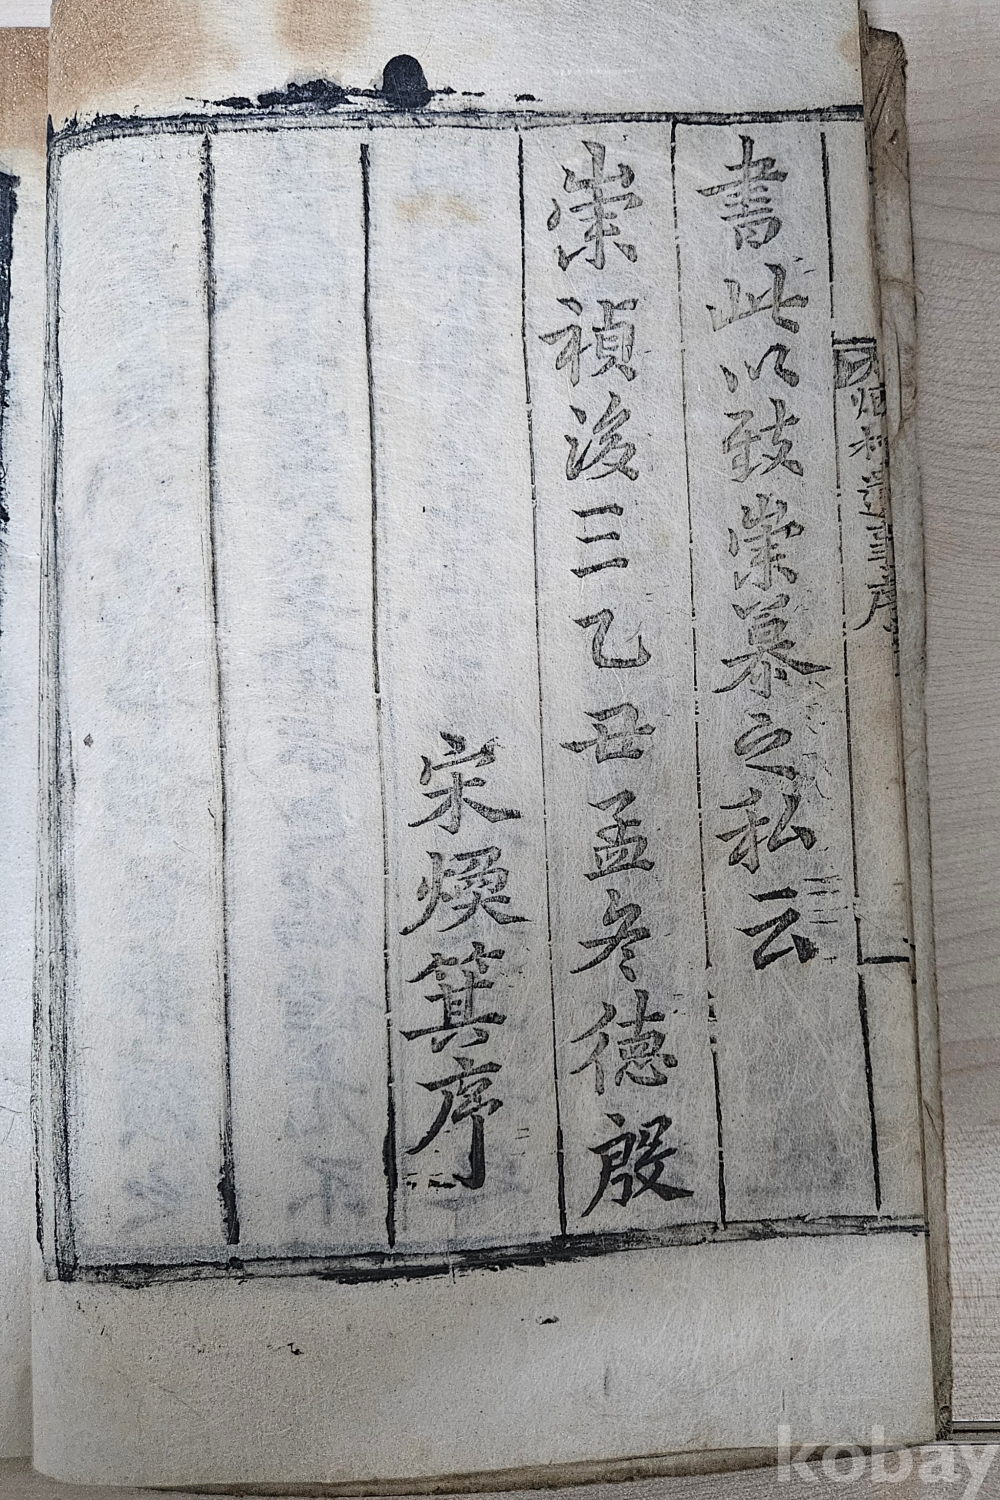 書此以致崇慕之私云
崇禎後三乙丑孟冬德殷
宋煥箕序
kobay